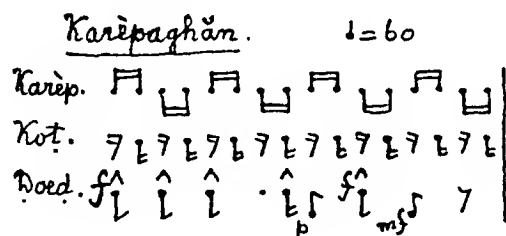 Karèpaghǎn. ♩=60
Karèp.
Koṭ.
Ḍoeḍ. f p f mf